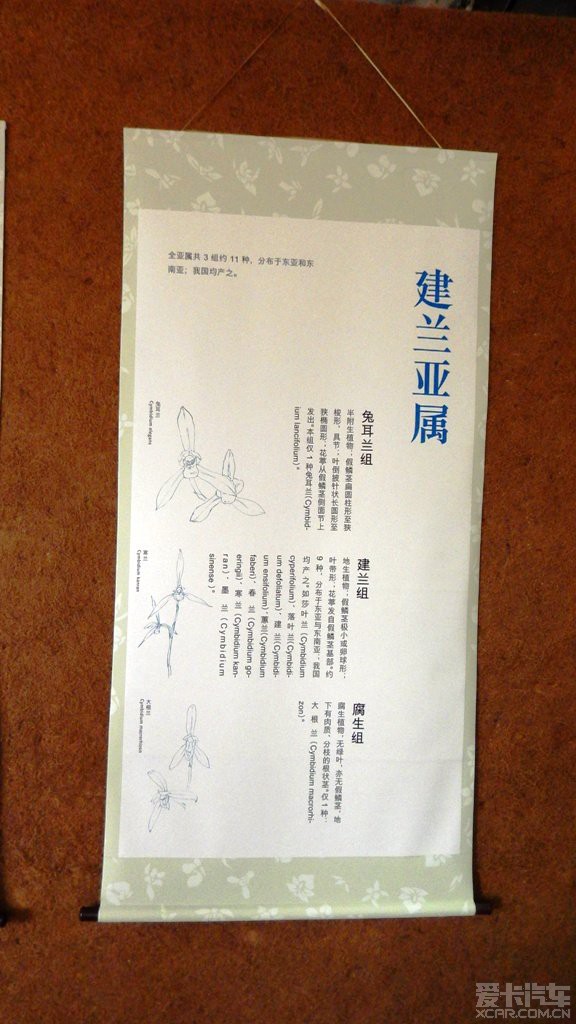 建兰亚属
全亚属共 3 组约 11 种，分布于东亚和东
南亚；我国均产之。
兔耳兰组
半附生植物；假鳞茎扁圆柱形至狭
梭形，具节；叶倒披针状长圆形至
狭椭圆形；花葶从假鳞茎侧面节上
发出。本组仅 1 种兔耳兰(Cymbid-
ium lancifolium)。
建兰组
地生植物；假鳞茎极小或卵球形；
叶带形；花葶发自假鳞茎基部。约
9 种，分布于东亚与东南亚；我国
均产之。如莎叶兰(Cymbidium
cyperifolium)、落叶兰(Cymbidi-
um defoliatum)、建兰(Cymbidi-
um ensifolium)、蕙兰(Cymbidium
faberi)、春兰(Cymbidium go-
eringii)、寒兰(Cymbidium kan-
ran)、墨兰(Cymbidium
sinense)。
腐生组
腐生植物，无绿叶，亦无假鳞茎，地
下有肉质、分枝的根状茎。仅 1 种：
大根兰(Cymbidium macrorhi-
zon)。
兔耳兰
Cymbidium elegans
寒兰
Cymbidium kanran
大根兰
Cymbidium macrorhizon
爱卡汽车
XCAR.COM.CN